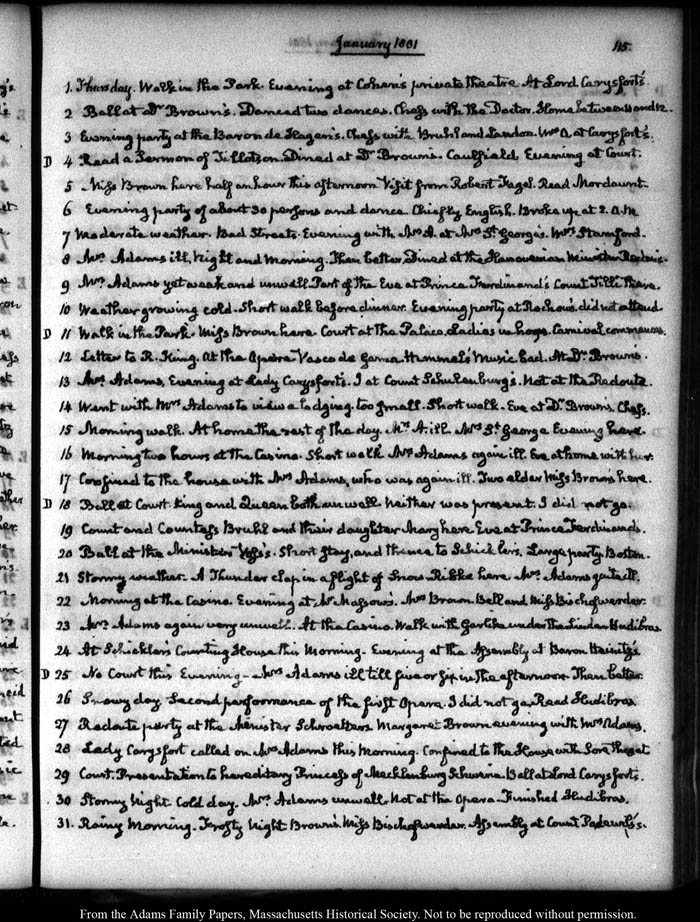 January 1801
115.
1. Thursday. Walk in the Park. Evening at Cohen's private theatre. At Lord Carysfort's
2 Ball at Dr Brown's. Danced two dances. Chess with the Doctor. Home between 11 and 12.
3 Evening party at the Baron de Hagen's. Chess with Bruhl and Landon. Mrs A. at Carysfort's.
D 4 Read a Sermon of Tillotson. Dined at Dr Brown's. Caulfield Evening at Court.
5 Miss Brown here half an hour this afternoon Visit from Robert Fagel. Read Mordaunt.
6 Evening party of about 30 persons and dance. Chiefly English. Broke up at 2. A.M.
7 Moderate weather. Bad Streets. Evening with Mrs A. at Mrs St George's. Mrs Stamford.
8 Mrs Adams ill, Night and Morning. Then better. Dined at the Hanoverian Minister
9 Mrs Adams yet weak and unwell Part of the Eve at Prince Ferdinand's Count Tilli there.
10 Weather growing cold. Short walk before dinner. Evening party at did not attend
D 11 Walk in the Park. Miss Brown here. Court at the Palace. Ladies in hoops. Carnival commences.
12 Letter to R. King. At the Opera Vasco de Gama Himmel's Music bad. At Dr Browns.
13 Mrs Adams, Evening at Lady Carysfort's. I at Count Schulenburg's. Not at the Redoute.
14 Went with Mrs Adams to view a lodging. too small. Short walk. Eve at Dr Brown's. Chess.
15 Morning walk. At home the rest of the day. Mrs A. ill. Mrs St George Evening here.
16 Morning two hours at the Casino. Short walk Mrs Adams again ill. Eve at home with her.
17 Confined to the house with Mrs Adams, who was again ill. Two elder Miss Browns here.
D 18 Ball at Court. King and Queen both unwell neither was present. I did not go.
19 Count and Countess Bruhl and their daughter Mary here Eve at Prince Ferdinands.
20 Ball at the Minister Voss's. Short stay, and thence to Schickler's. Large party Boston.
21 Stormy weather. A Thunder clap in a flight of Snow. here. Mrs Adams quite ill.
22 Morning at the Casino. Evening at Mr Massow's. Mrs Brown Bell and Miss Bischofswerder.
23 Mrs Adams again very unwell. At the Casino. Walk with Garlike under the Linden Hudibras
24 At Schickler's Counting House this Morning. Evening at the Assembly at Baron Heinitz's
D 25 No Court this Evening. Mrs Adams ill till five or six in the afternoon Then better
26 Snowy day Second performance of the first Opera. I did not go. Read Hudibras
27 Redoute party at the Minister Schroetters Margaret Brown evening with Mrs Adams.
28 Lady Carysfort called on Mrs Adams this Morning. Confined to the House with Sore throat
29 Court. Presentation to hereditary Princess of Mecklenburg Schwerin. Ball at Lord Carysforts.
30 Stormy Night Cold day. Mrs Adams unwell. Not at the Opera. Finished Hudibras.
31. Rainy Morning. Frosty Night Brown's. Miss Bischofswerder. Assembly at Count Podewils's.
From the Adams Family Papers, Massachusetts Historical Society. Not to be reproduced without permission.